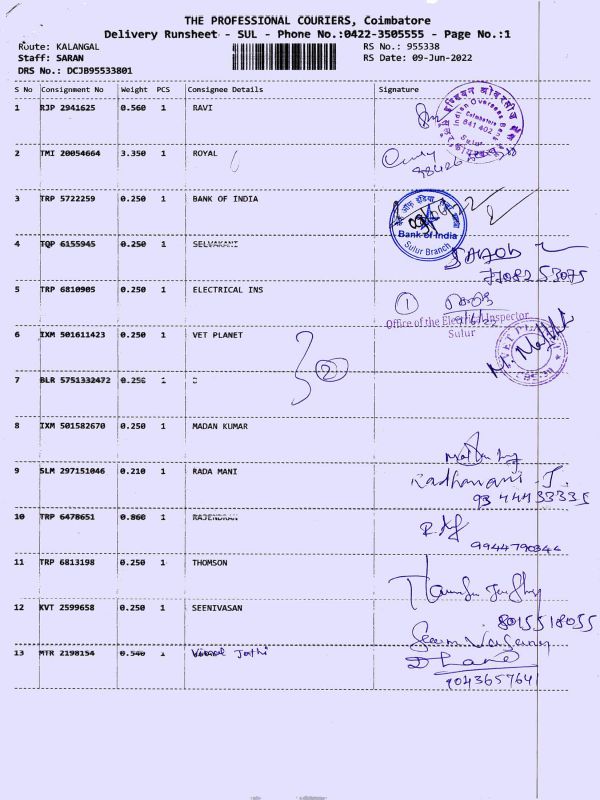 THE PROFESSIONAL COURIERS, Coimbatore
Delivery Runsheet - SUL - Phone No.:0422-3505555 - Page No.:1
Route: KALANGAL RS No.: 955338
Staff: SARAN RS Date: 09-Jun-2022
DRS No.: DCJB95533801
S No Consignment No Weight PCS Consignee Details Signature
1 RJP 2941625 0.560 1 RAVI
Indian Overseas Bank
Coimbatore
641 402
Sulur
2 TMI 20054664 3.350 1 ROYAL
3 TRP 5722259 0.250 1 BANK OF INDIA
Bank of India
Sulur Branch
4 TQP 6155945 0.250 1 SELVAKANI
77082 53075
5 TRP 6810905 0.250 1 ELECTRICAL INS
1
Office of the Electrical Inspector
Sulur
6 IXM 501611423 0.250 1 VET PLANET
2
7 BLR 5751332472 0.250 1
8 IXM 501582670 0.250 1 MADAN KUMAR
9 SLM 297151046 0.210 1 RADA MANI
Radhamani. J.
93 444 33335
10 TRP 6478651 0.860 1 RAJENDRAN
9944790344
11 TRP 6813198 0.250 1 THOMSON
12 KVT 2599658 0.250 1 SEENIVASAN
8015518055
13 MTR 2198154 0.540 1 Vimal Jothi
9043657641